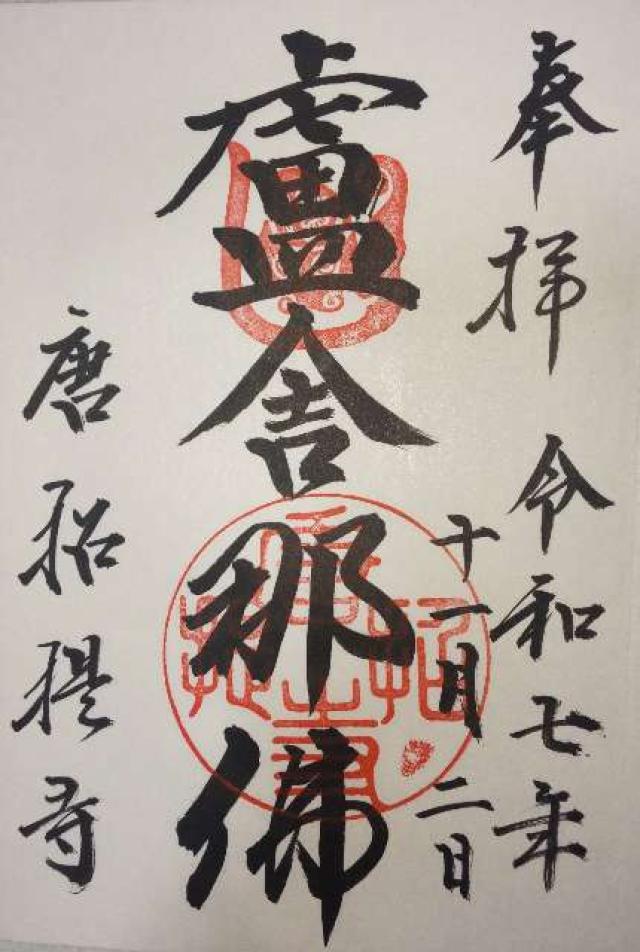 奉拝 令和七年
十一月二日
盧舎那佛
唐招提寺